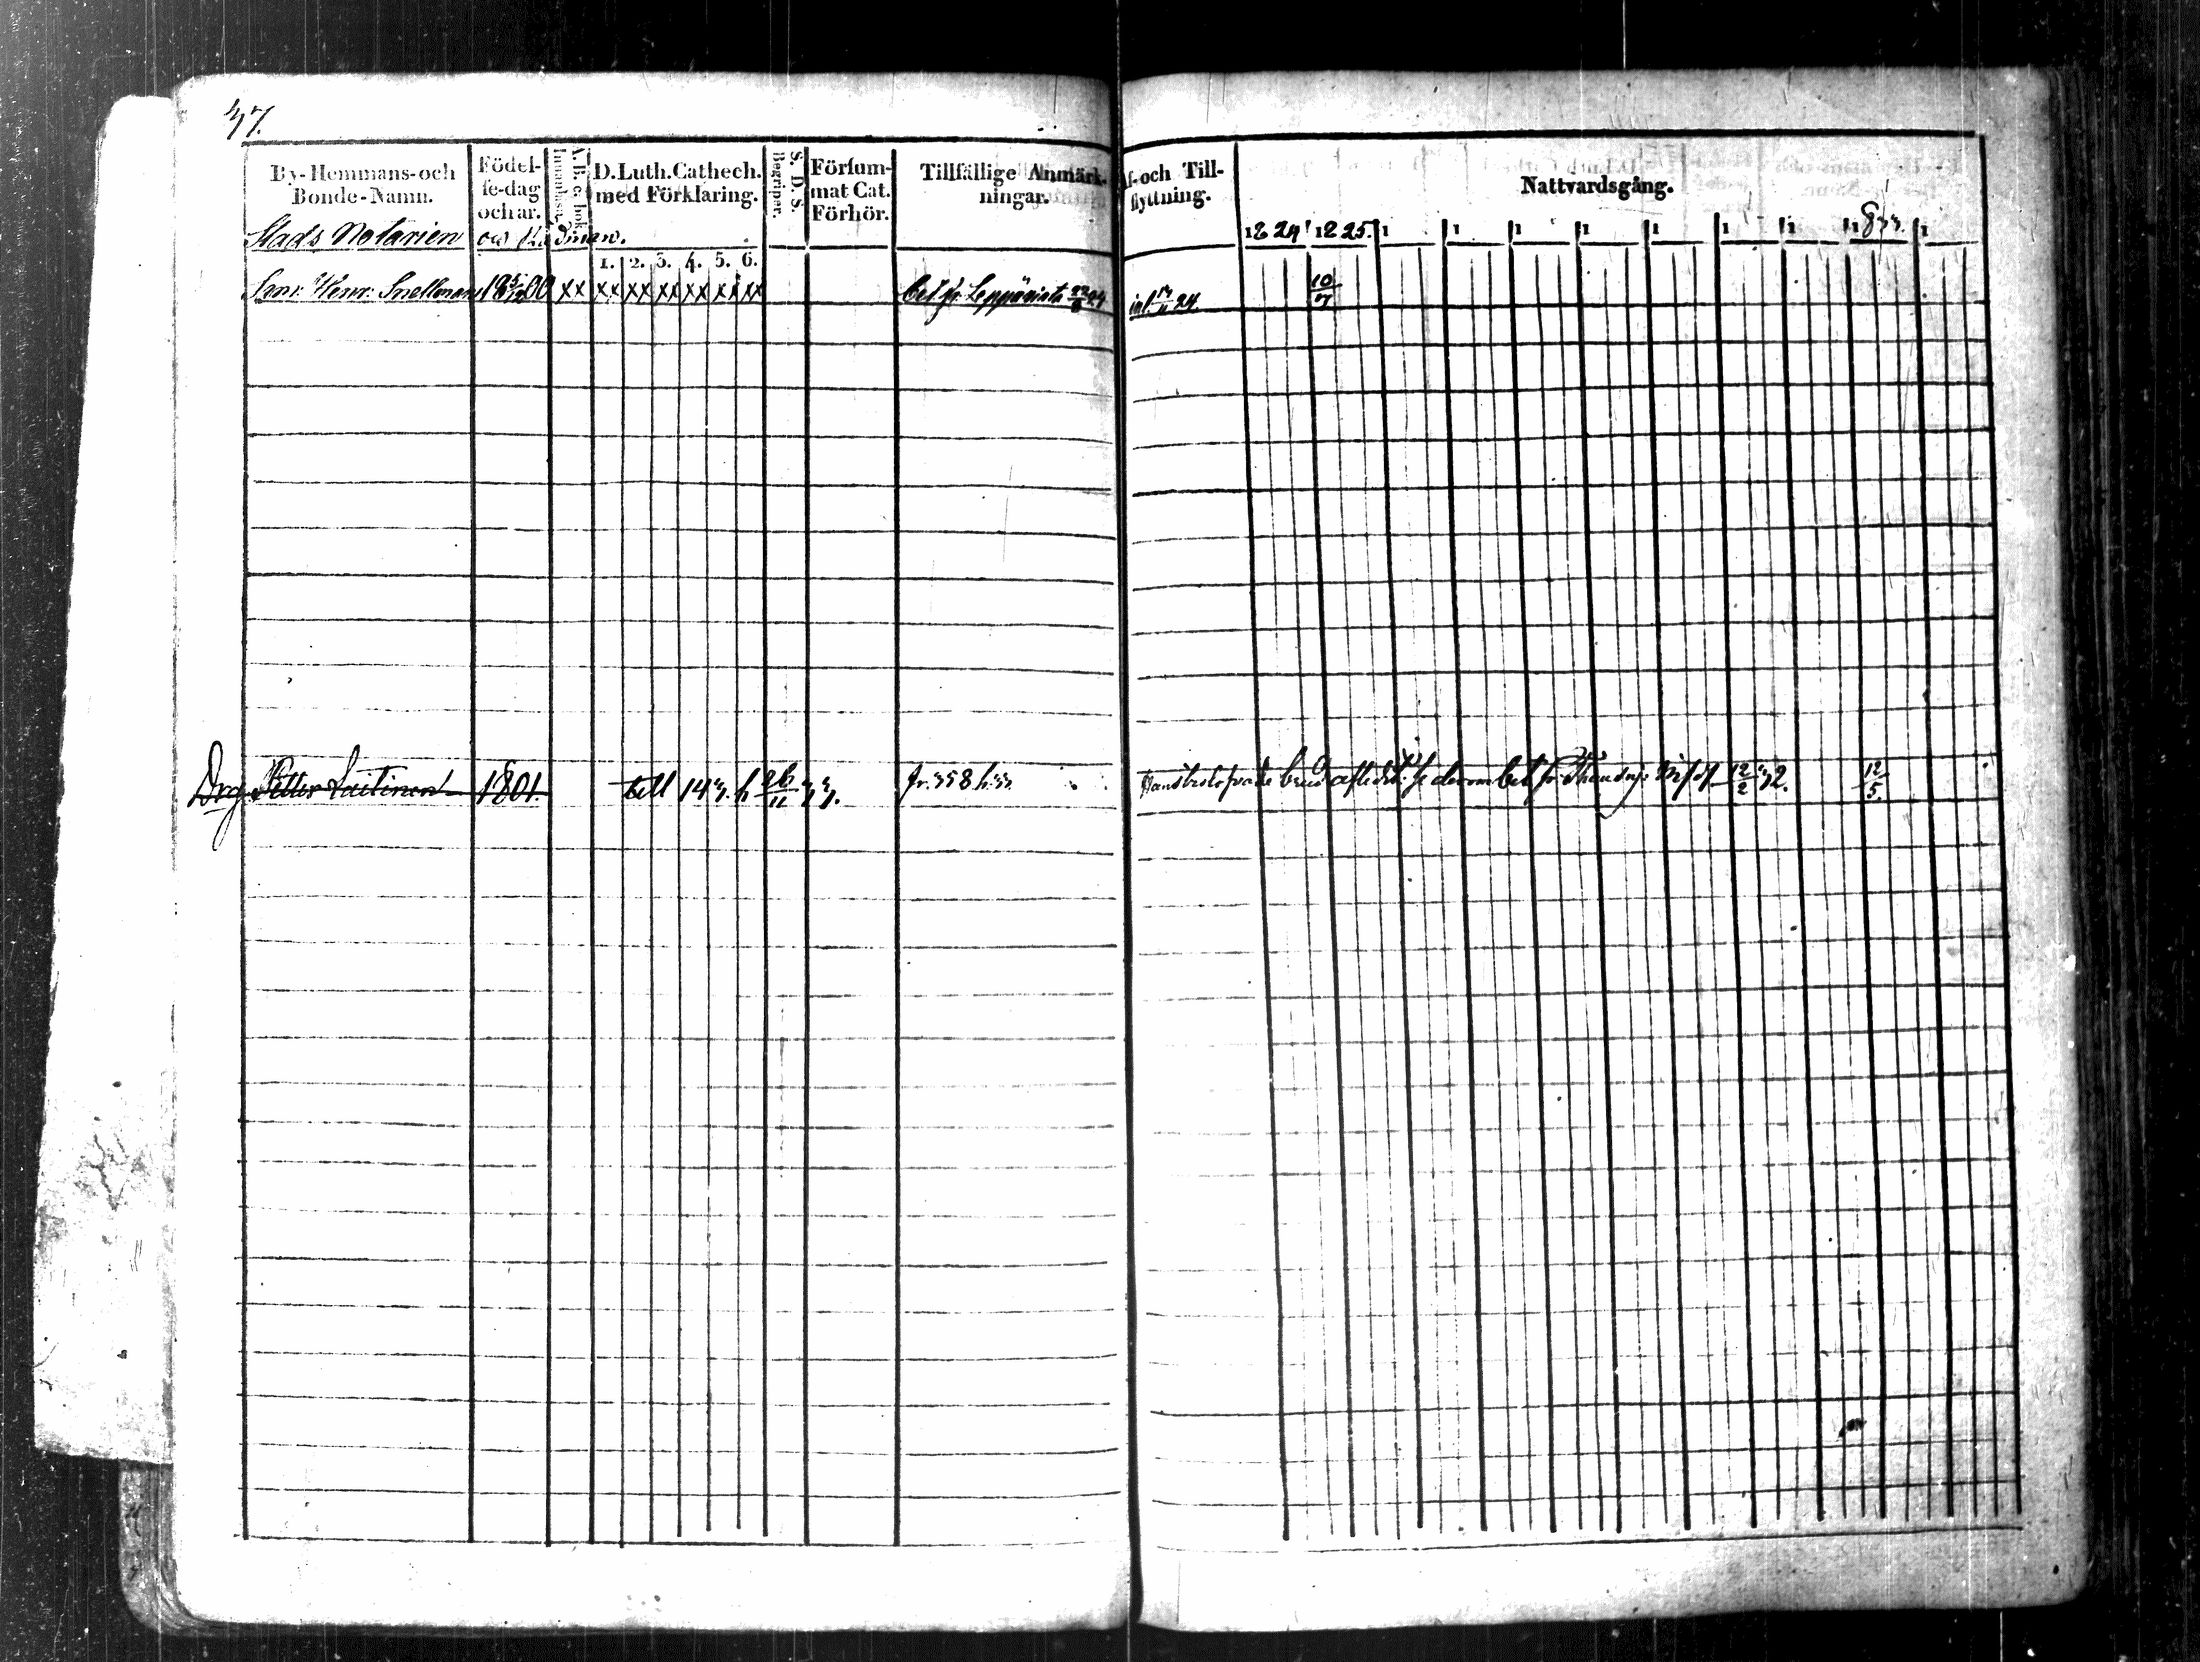 37.
By-Hemmans-och Bonde-Namn.
Födel-se-dag och ar.
A. B. c. bok Innanläsn.
D. Luth. Cathech. med Förklaring.
1. 2. 3. 4. 5. 6.
S. D. S. Begriper.
Försum-mat Cat. Förhör.
Tillfällige Anmärk-ningar.
f-och Till-flyttning.
Nattvardsgång.
1824 1825. 1 1 1 1 1 1 1 1833. 1
Stads Notarien och Rådman.
Sam. Henr. Snellman 1800 xx xx xx xx xx xx xx bet. fr. Leppävirta 22/8 24 inl. 24. 10/7
Drg. Petter Laitinen 1801. till 143. h 26/11 33. fr. 358 h. bet. fr. 12/2 32. 12/5.